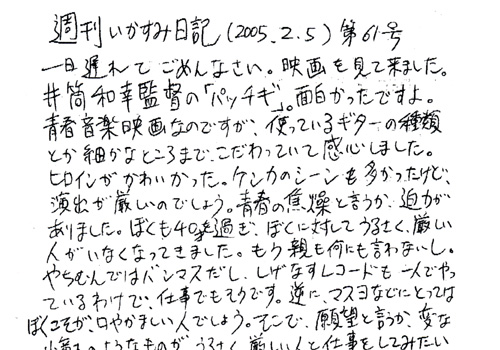 週刊いかすみ日記(2005.2.5)第61号
一日遅れてごめんなさい。映画を見て来ました。
井筒和幸監督の「パッチギ」。面白かったですよ。
青春音楽映画なのですが、使っているギターの種類
とか細かなところまで、こだわっていて感心しました。
ヒロインがかわいかった。ケンカのシーンも多かったけど、
演出が厳しいのでしょう。青春の焦燥と言うか、迫力が
ありました。ぼくも40を過ぎ、ぼくに対してうるさく、厳しい
人がいなくなってきました。もう親も何にも言わないし。
やちむんではバンマスだし、しげなすレコードも一人でやっ
ているわけで、仕事でもそうです。逆に、マスヨなどにとっては
ぼくこそが、口やかましい人でしょう。そこで、願望と言うか、変な
のようなものが、うるさく、厳しい人と仕事をしてみたい